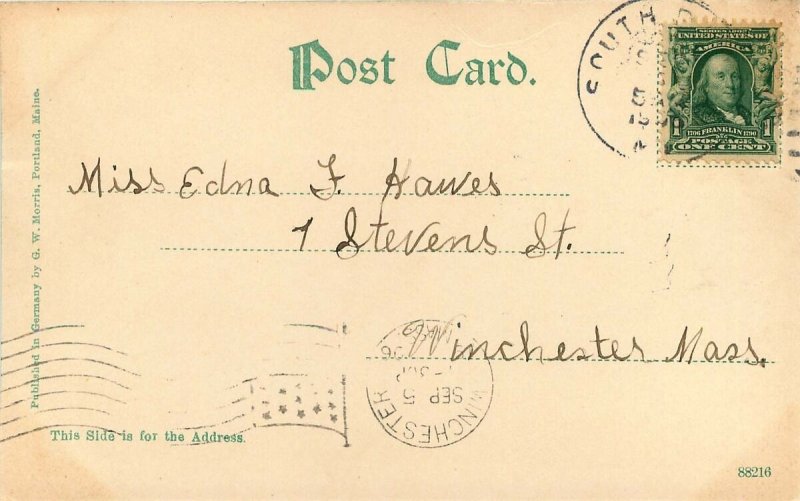 Post Card.
SOUTH
SERIES 1902
UNITED STATES OF
AMERICA
1706 FRANKLIN 1790
1 1
POSTAGE
ONE CENT
Miss Edna F. Hawes
1 Stevens St.
Winchester Mass.
WINCHESTER
SEP 5
Published in Germany by G. W. Morris, Portland, Maine.
This Side is for the Address.
88216